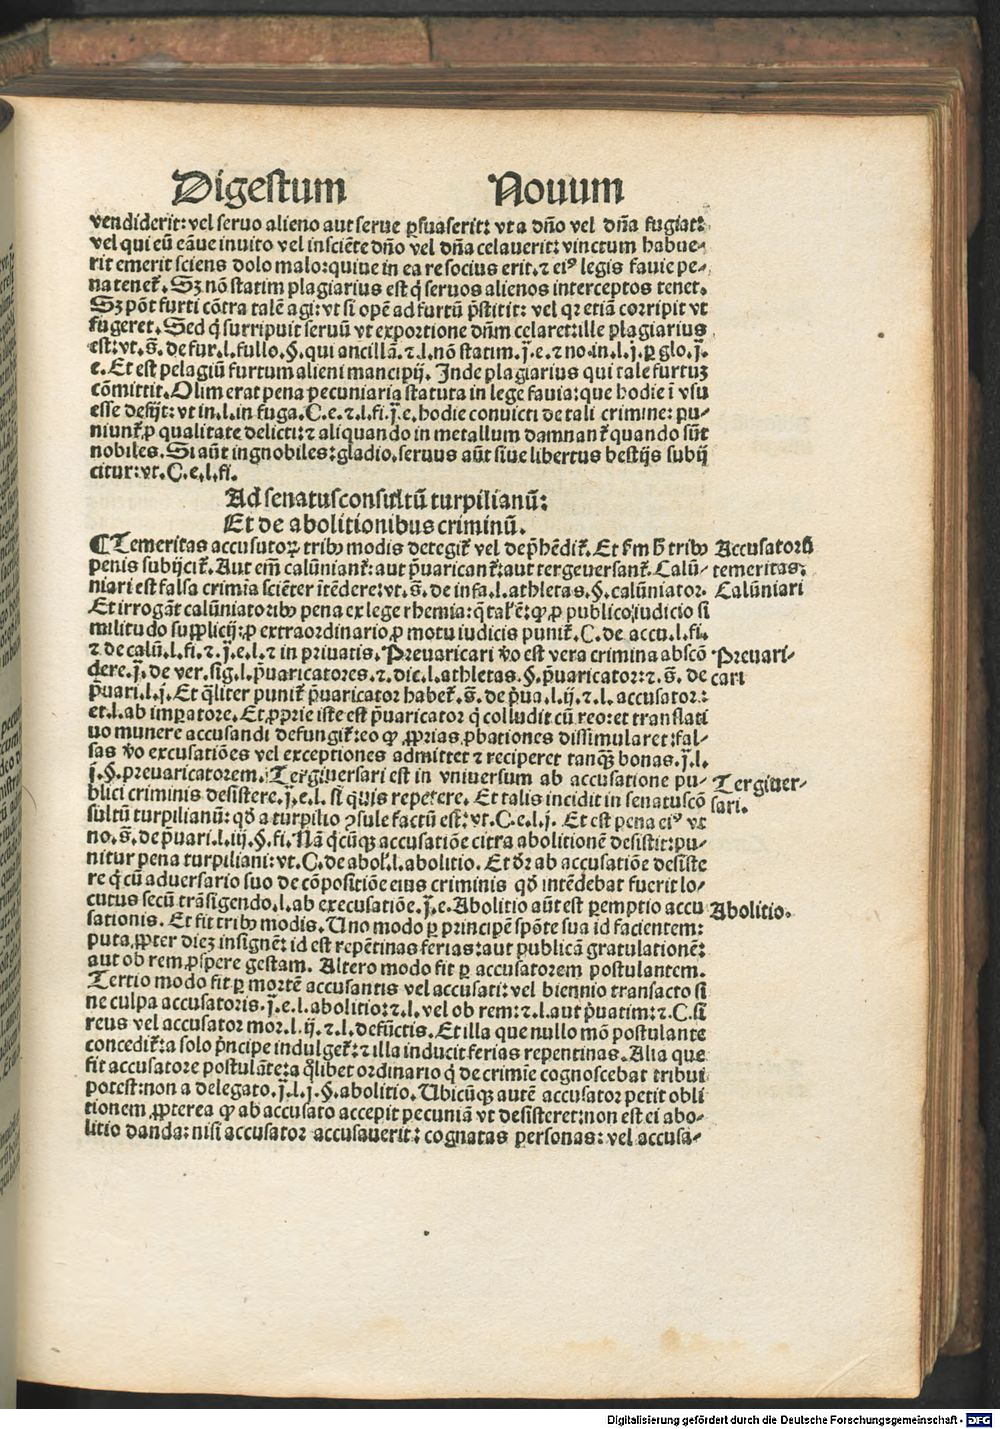 Digestum Nouum
vendiderit: vel seruo alieno aut serue ꝑsuaserit: vt a dño vel dña fugiat:
vel qui eū eāue inuito vel insciēte dño vel dña celauerit: vinctum habue⸗
rit emerit sciens dolo malo: quiue in ea re socius erit. ⁊ eiꝰ legis fauie pe⸗
na tenet̄. Sꝫ nō statim plagiarius est q̇ seruos alienos interceptos tenet.
Sꝫ pōt furti cōtra talē agi: vt si opē ad furtū p̄stitit: vel qꝛ etiā corripit vt
fugeret. Sed q̇ surripuit seruū vt exportione dñm celaret: ille plagiarius
est: vt. s̄. de fur. l. fullo. §. qui ancillā. ⁊. l. nō statim. j̄. e. ⁊ no. in. l. j. ꝑ glo. j̄.
e. Et est pelagiū furtum alieni mancipij. Inde plagiarius qui tale furtuꝫ
cōmittit. Olim erat pena pecuniaria statuta in lege fauia: que hodie ī vsu
esse desijt: vt in. l. in fuga. C. e. ⁊. l. fi. j̄. e. hodie conuicti de tali crimine: pu⸗
niunt̄ ꝓ qualitate delicti: ⁊ aliquando in metallum damnant̄ quando sūt
nobiles. Si aūt ingnobiles: gladio. seruus aūt siue libertus bestijs subij
citur: vt. C. e. l. fi.
Ad senatusconsultū turpilianū:
Et de abolitionibus criminū.
¶ Temeritas accusatoꝝ tribꝰ modis detegit̄ vel dep̄hēdit̄. Et s̄m h̄ tribꝰ
Accusatorū
penis subijcit̄. Aut em̄ calūniant̄: aut p̄uaricant̄: aut tergeuersant̄. Calū⸗
temeritas.
niari est falsa crimīa sciēter ītēdere: vt. s̄. de infa. l. athletas. §. calūniator.
Calūniari
Et irrogāt calūniatoribꝰ pena ex lege rhemia: q̄ tal̄ ē: ꝙ ꝓ publico iudicio si
militudo supplicij: ꝓ extraordinario ꝓ motu iudicis punit̄. C. de accu. l. fi.
⁊ de calū. l. fi. ⁊. j̄. e. l. ⁊ in priuatis. Preuaricari v̄o est vera crimina abscō
Preuari⸗
dere. j̄. de ver. sig. l. p̄uaricatores. ⁊. dic. l. athletas. §. p̄uaricator: ⁊. s̄. de
cari
p̄uari. l. j. Et q̄liter punit̄ p̄uaricator habet̄. s̄. de p̄ua. l. ij. ⁊. l. accusator.:
et. l. ab imꝑatore. Et ꝓprie iste est p̄uaricator q̇ colludit cū reo: et translati
uo munere accusandi defungit̄: eo ꝙ ꝓprias ꝓbationes dissimularet: fal⸗
sas v̄o excusatiōes vel exceptiones admittet ⁊ reciperet tanq̄ꝫ bonas. j̄. l.
j. §. preuaricatorem. Tergiuersari est in vniuersum ab accusatione pu⸗
Tergiuer⸗
blici criminis desistere. j̄. e. l. si quis repetere. Et talis incidit in senatuscō
sari.
sultū turpilianū: qd̄ a turpilio ꝯsule factū est: vt. C. e. l. j. Et est pena eiꝰ vt
no. s̄. de p̄uari. l. iij. §. fi. Nā q̇cūqꝫ accusatiōe citra abolitionē desistit: pu⸗
nitur pena turpiliani: vt. C. de abol. l. abolitio. Et dr̄ ab accusatiōe desiste
re q̇ cū aduersario suo de cōpositiōe eius criminis qd̄ intēdebat fuerit lo⸗
cutus secū trāsigendo. l. ab execusatiōe. j̄. e. Abolitio aūt est ꝑemptio accu
Abolitio.
sationis. Et fit tribꝰ modis. Uno modo ꝑ principē spōte sua id facientem:
puta ꝓpter dieꝫ insignē: id est repētinas ferias: aut publicā gratulationē:
aut ob rem ꝓspere gestam. Altero modo fit ꝑ accusatorem postulantem.
Tertio modo fit ꝑ mortē accusantis vel accusati: vel biennio transacto si
ne culpa accusatoris. j̄. e. l. abolitio: ⁊. l. vel ob rem: ⁊. l. aut p̄uatim: ⁊. C. si
reus vel accusator mor. l. ij. ⁊. l. defūctis. Et illa que nullo mō postulante
concedit̄: a solo p̄ncipe indulget̄: ⁊ illa inducit ferias repentinas. Alia que
fit accusatore postulāte: a q̄libet ordinario q̇ de crimīe cognoscebat tribui
potest: non a delegato. j̄. l. j. §. abolitio. Ubicūqꝫ autē accusator petit obli
tionem ꝓpterea ꝙ ab accusato accepit pecuniā vt desisteret: non est ei abo⸗
litio danda: nisi accusator accusauerit: cognatas personas: vel accusa⸗
Digitalisierung gefördert durch die Deutsche Forschungsgemeinschaft - DFG